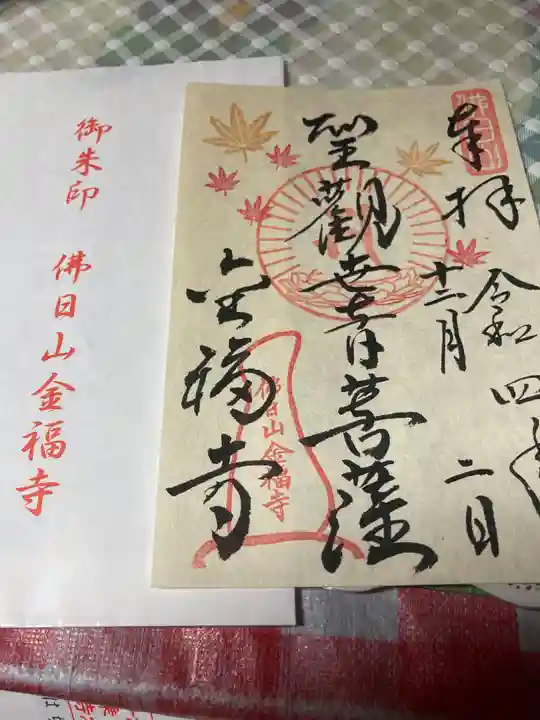 奉拝
令和四年
十二月二日
聖觀世音菩薩
金福寺
佛日山金福寺
御朱印 佛日山金福寺